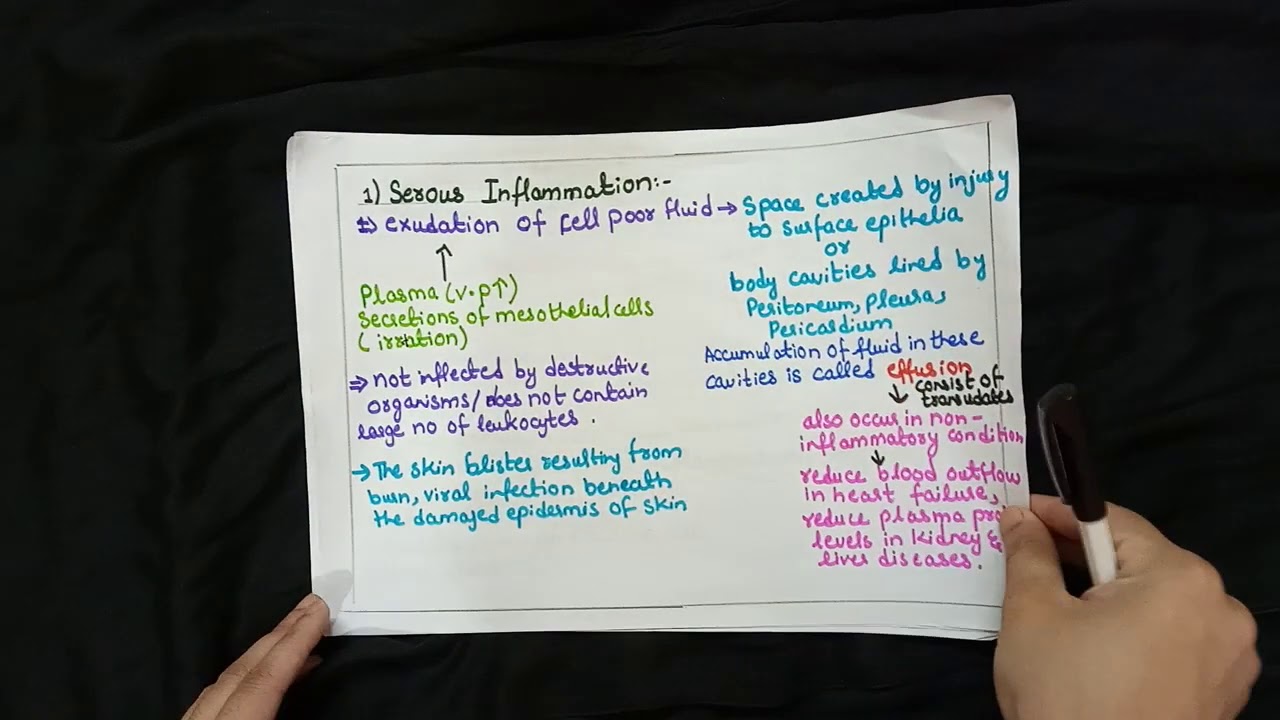 1) Serous Inflammation:-
⇒ exudation of cell poor fluid → Space created by injury
to surface epithelia
or
body cavities lined by
Peritoneum, pleura,
Pericardium
Accumulation of fluid in these
cavities is called effusion
consist of
transudates
also occur in non-
inflammatory condition
reduce blood outflow
in heart failure,
reduce plasma pro
levels in kidney &
liver diseases.
↑
Plasma (v.p↑)
Secretions of mesothelial cells
(irration)
⇒ not inflected by destructive
organisms/ does not contain
large no of leukocytes .
→ The skin blister resulting from
burn, viral infection beneath
the damaged epidermis of skin